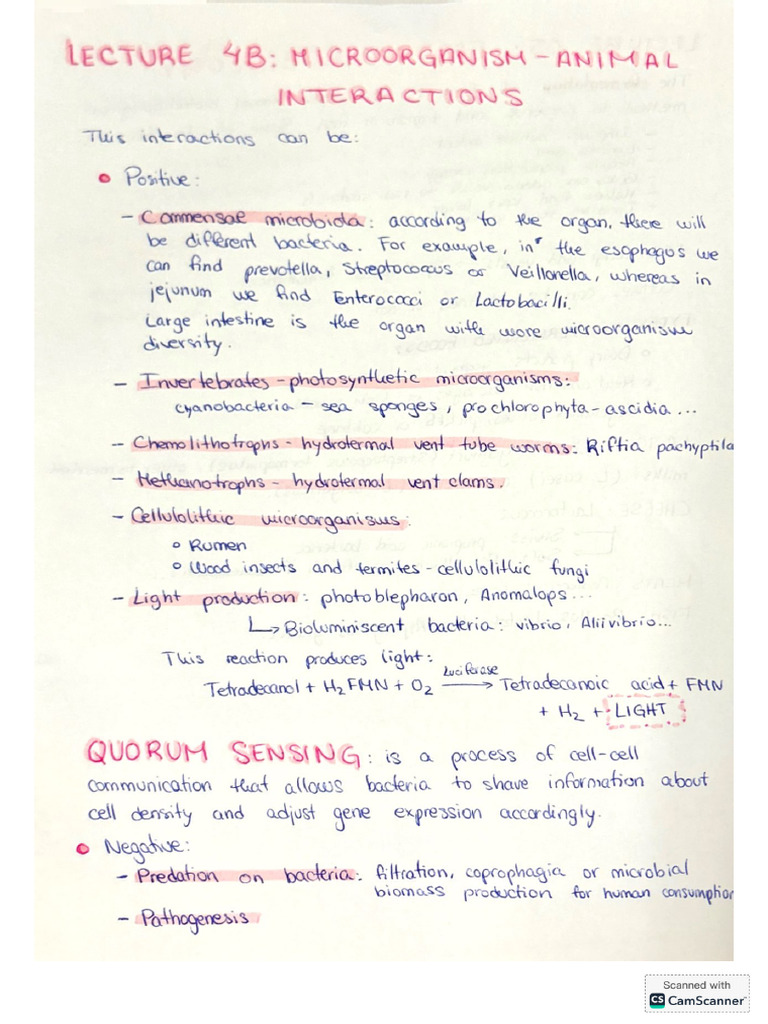 LECTURE 4B: MICROORGANISM - ANIMAL
INTERACTIONS
This interactions can be:
• Positive:
- Commensae microbiota: according to the organ, there will
be different bacteria. For example, in the esophagus we
can find prevotella, Streptococcus or Veillonella, whereas in
jejunum we find Enterococci or Lactobacilli.
Large intestine is the organ with more microorganism
diversity.
- Invertebrates - photosynthetic microorganisms:
cyanobacteria - sea sponges, prochlorophyta - ascidia ...
- Chemolithotrophs - hydrotermal vent tube worms: Riftia pachyptila
- Methanotrophs - hydrotermal vent clams.
- Cellulolithic microorganisms:
° Rumen
° Wood insects and termites - cellulolithic fungi
- Light production: photoblepharon, Anomalops ...
↳ Bioluminiscent bacteria: vibrio, Aliivibrio...
This reaction produces light:
Luciferase
Tetradecanol + H2FMN + O2 → Tetradecanoic acid + FMN
+ H2 + LIGHT
QUORUM SENSING: is a process of cell-cell
communication that allows bacteria to share information about
cell density and adjust gene expression accordingly.
• Negative:
- Predation on bacteria: filtration, coprophagia or microbial
biomass production for human consumption
- Pathogenesis
Scanned with
CS CamScanner